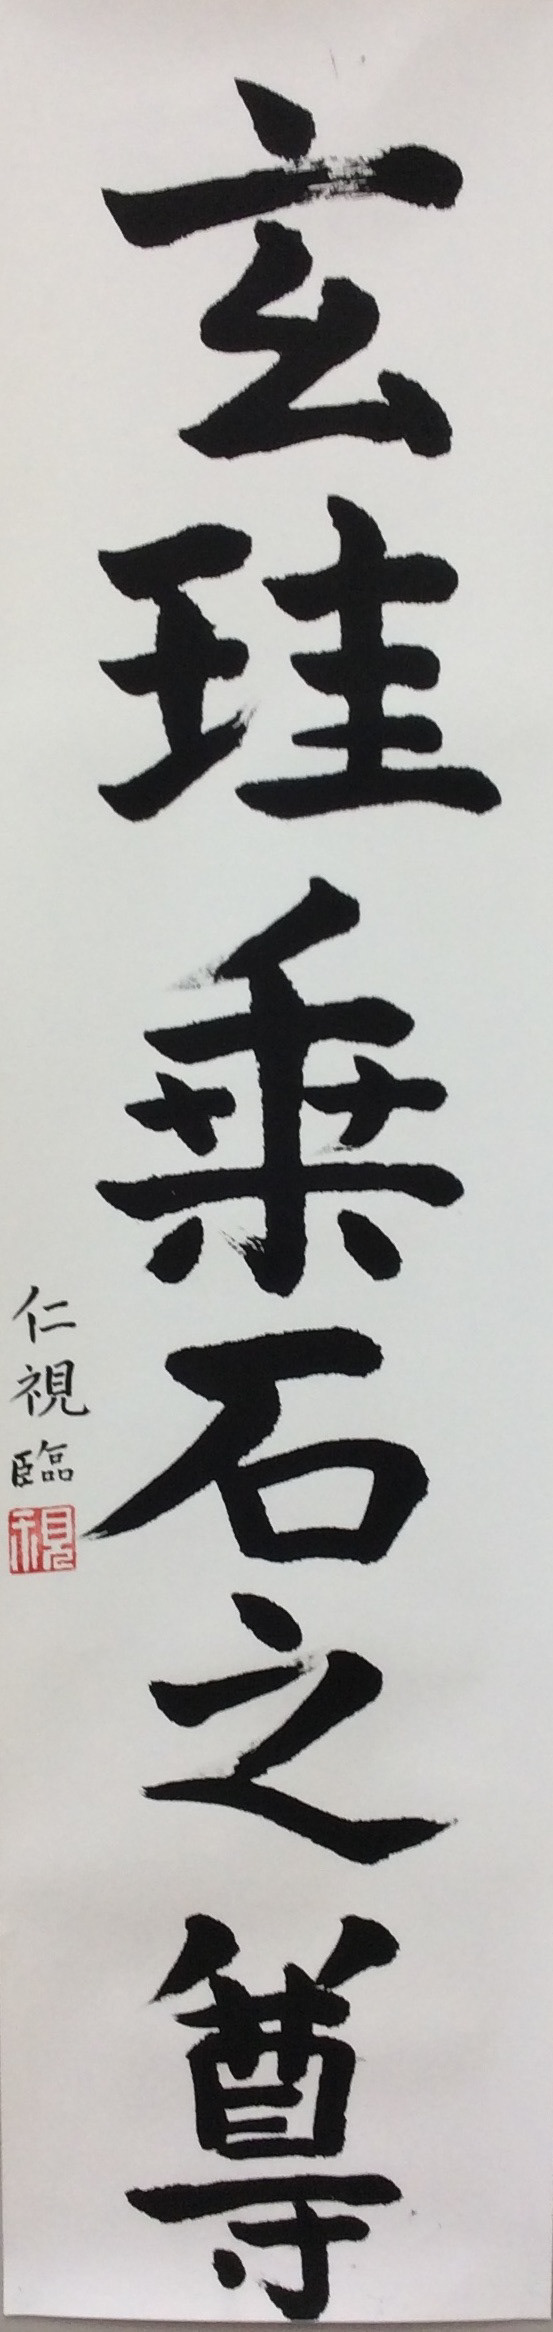 玄珪乗石之尊
仁視臨
視